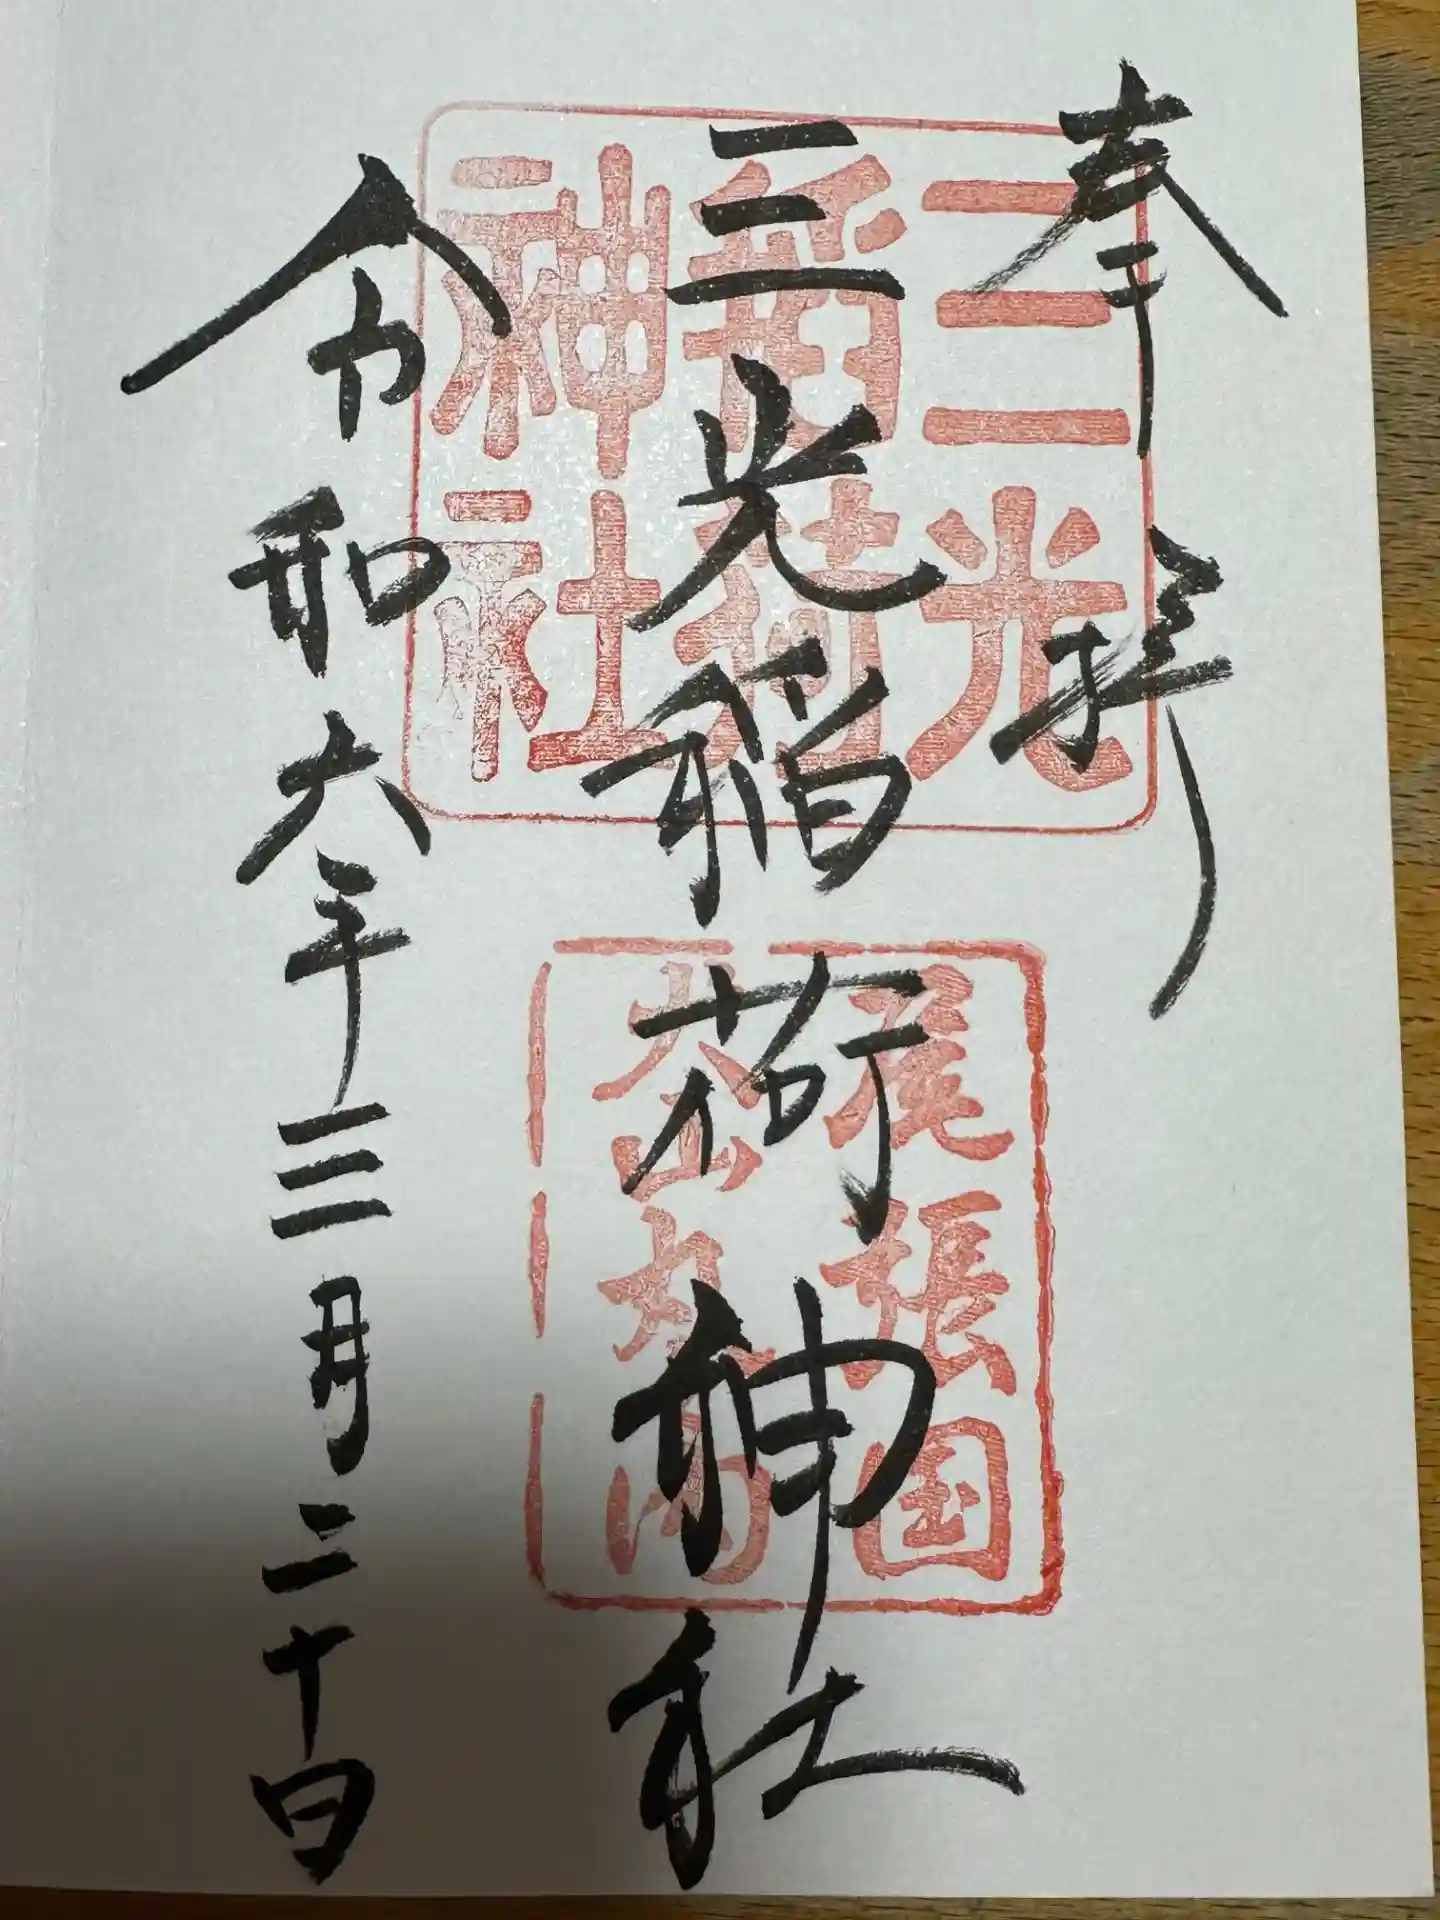 奉拝
三光稲荷神社
令和六年三月二十日
三光
稲荷
神社
尾張国
犬山丸の内